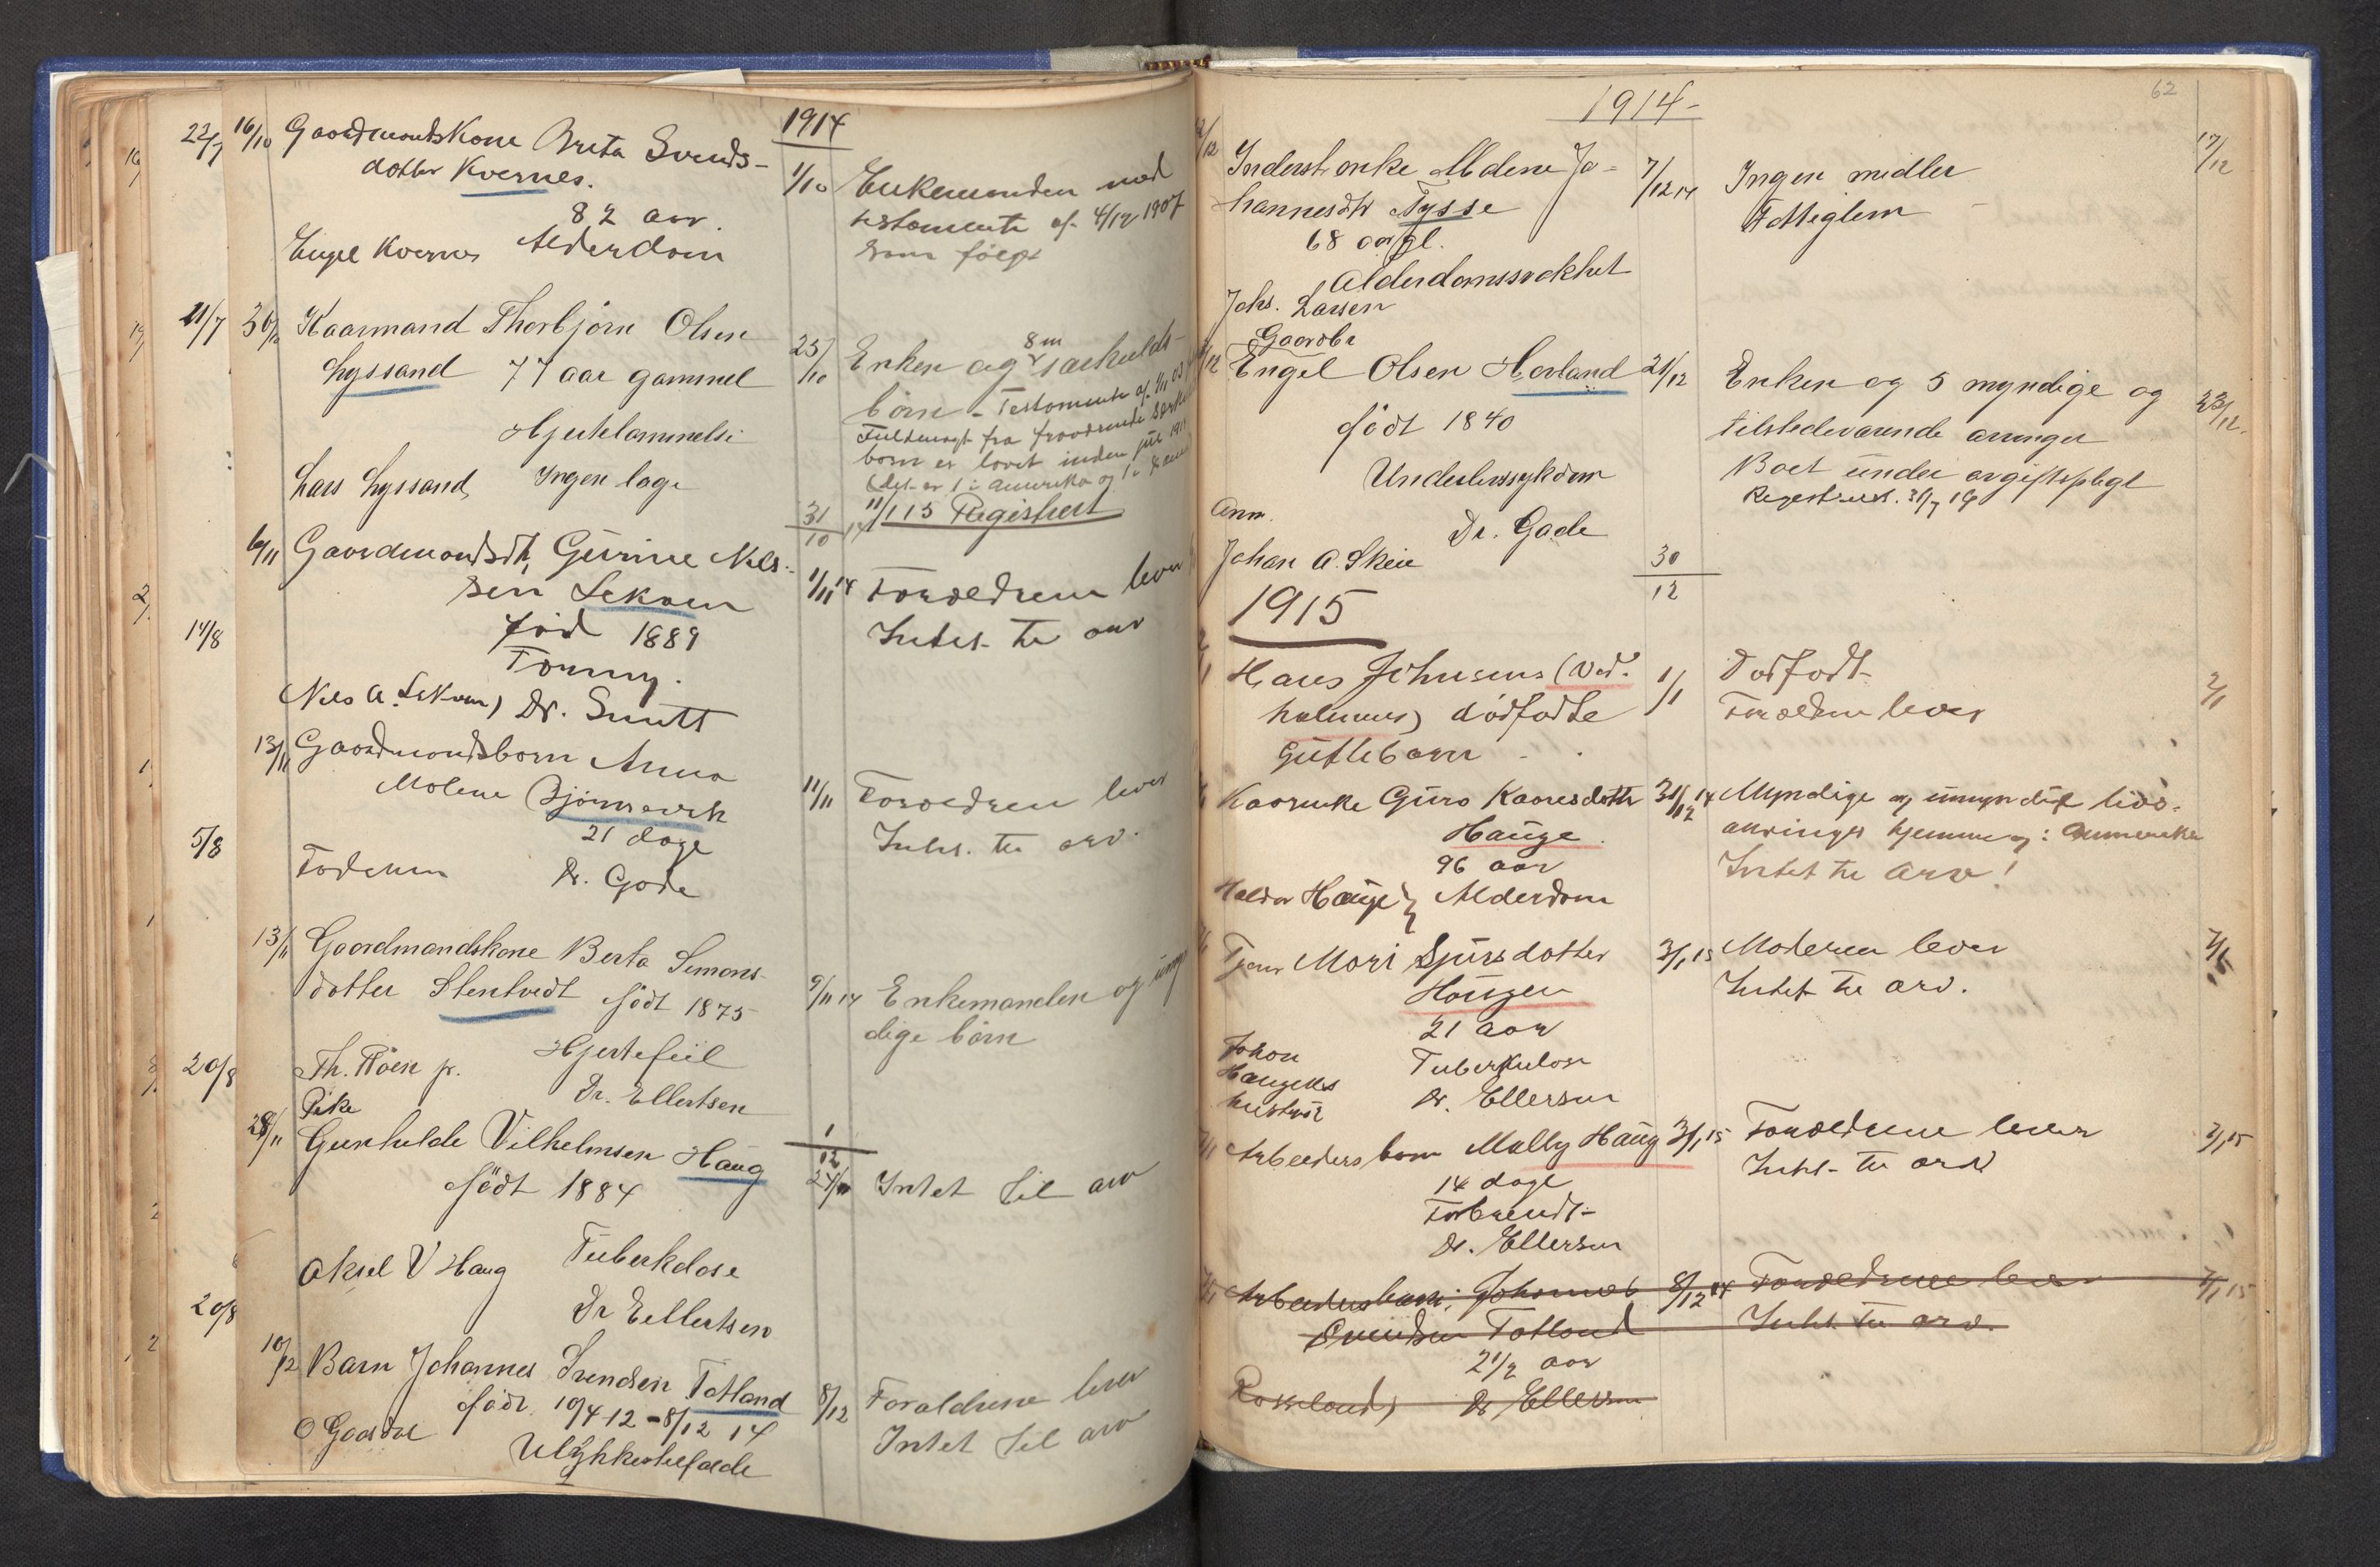 1914
22/7 16/10 Gaardmandskone Brita Svends-
dotter Kvernes.
82 aar.
Engel Kvernes Alderdom
1/10 Enkemanden med
testamente af 4/12 1907
som følger
21/7 30/10 Kaarmand Thorbjørn Olsen
Lyssand 77 aar gammel
Hjertelammelse
Lars Lyssand, Ingen læge
25/10 Enken og 8 særkulds-
børn - Testamente af
Fuldmagt fra fraværende
børn er lovet inden jul 1914
(det er 1 i Amerika og 1 i
11/1 15 Registrert
31/10 14
6/11 Gaardmandsdtr, Gurine Nels-
sen Lekven
Fød 1889
14/8
Nels A. Lekven) Dr. Smitt
1/11 14 Forældrene lever
Intet til arv
13/11 Gaardmandsborn Anna
Molene Bjørnevik
21 dage
5/8
Faderen Dr. Gade
11/11 Forældrene lever
Intet til arv.
13/11 Gaardmandskone Berta Simons-
dotter Stentvedt født 1875
Hjertefeil
Th. Røen jr.
Dr. Ellertsen
20/8
9/11 14 Enkemanden og umyn
dige børn
Pike
28/11 Gunhilde Vilhelmsen Haug
født 1884
1/12
24/11 Intet til arv
Aksel V Haug Tuberkelose
Dr Eellertsen
20/8
10/12 Barn Johannes Svendsen Totland
født 10/4 12 - 8/12 14
O Gaardr
Ulykkestilfælde
8/12 Forældrene lever
Intet til arv
1914 -
62
Inderst enke Aldene Jo-
hannesdtr Tysse
68 aar gl.
Alderdomssvakhet
Johs. Larsen
7/12 14 Ingen midler
Fattiglem
17/12
Gaardbr
Engel Olsen Hovland
født 1840
Underlivssykdom
Dr. Gade
Anm.
Johan A. Skeie
21/12 Enken og 5 myndige og
tilstedeværende arvinger
Boet under avgiftspligt
23/12.
30/12
1915
Hans Johnsens (Ved-
holmens) dødfødte
Guttebarn
1/1 Dødfødt
Forældrene lever
2/1
Kaarenke Guro Kaaresdotter
Hauge
96 aar
Haldor Hauge} Alderdom
31/12 14 Myndige og umyndige livs-
arvinger hjemme og i Amerika
Intet til Arv!
Tjen Mari Sjursdotter
Haugen
21 aar
Tuberkulose
Dr. Ellersen
Johan
Haugens
hustru
3/1 15 Moderen lever
Intet til arv.
7/1
Arbeidersbarn Mally Haug
14 dage
Forbrendt -
Dr. Ellersen
3/1 15 Forældrene lever
Intet til arv
7/1 15
Arbeidersbarn, Johannes
Svendsen Totland
2 1/2 aar
Rosseland) Dr Ellersen
8/12 14 Forældrene lever
Intet til arv.
7/1 15